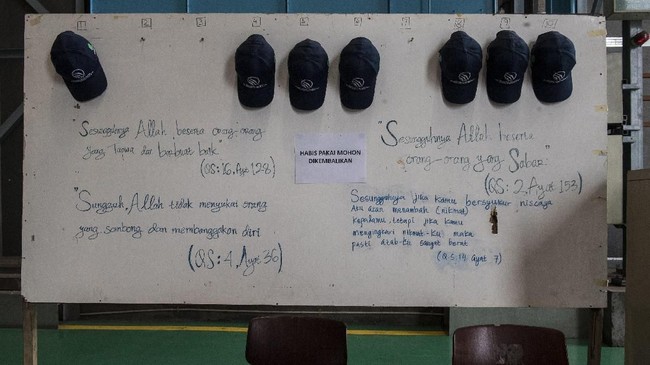 "Sesungguhnya Allah beserta orang-orang
yang taqwa dan berbuat baik"
(QS: 16, Aya 128)
"Sungguh, Allah tidak menyukai orang
yang sombong dan membanggakan diri
(QS: 4, Ayat 36)
HABIS PAKAI MOHON
DIKEMBALIKAN
"Sesungguhnya Allah beserta
orang-orang yang Sabar"
(QS: 2, Ayat 153)
Sesungguhnya jika kamu bersyukur niscaya
Aku akan menambah (nikmat)
kepadamu, tetapi jika kamu
mengingkari nikmat-Ku maka
pasti azab-Ku sangat berat
(Q.S: 14 Ayat 7)